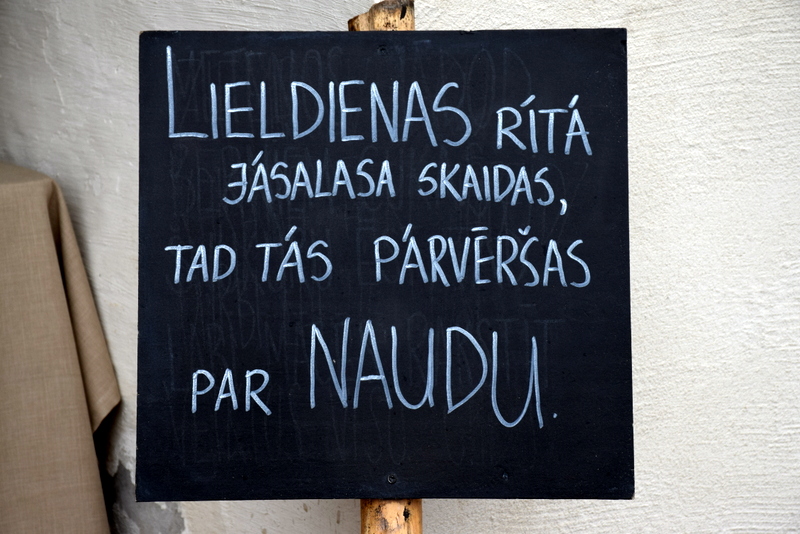 LIELDIENAS RÍTÁ
JÁSALASA SKAIDAS,
TAD TÁS PÁRVĒRŠAS
PAR NAUDU.